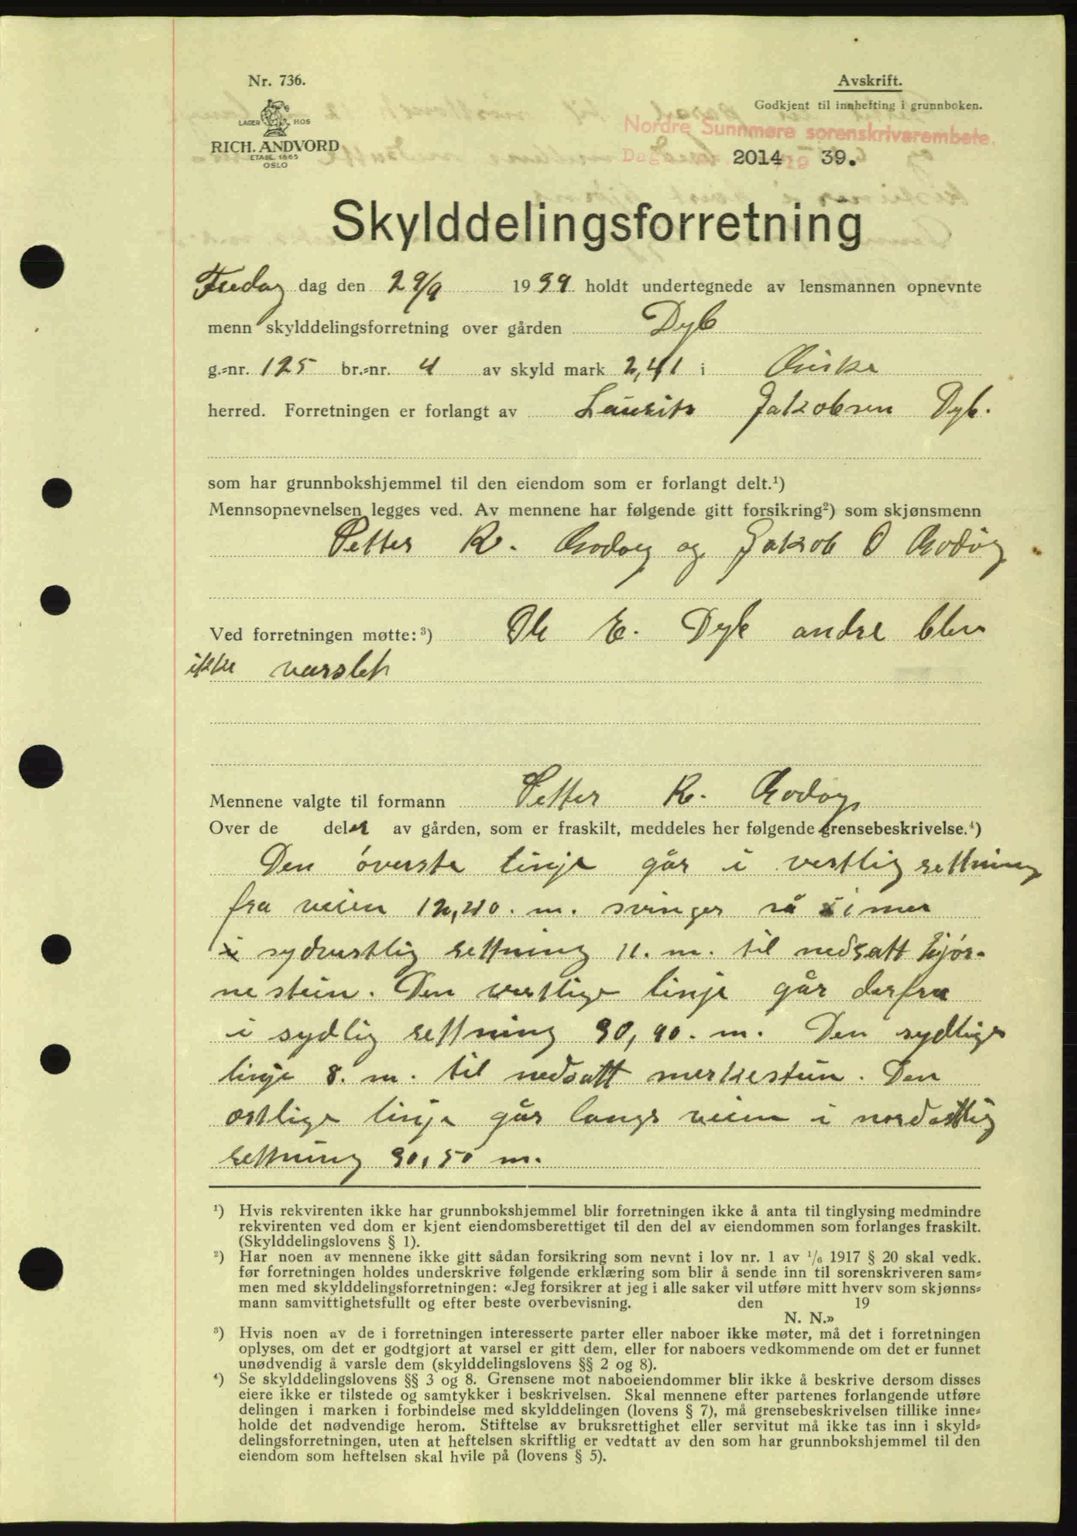 Nr. 736.
LAGER HOS
RICH. ANDVORD
ETABL. 1865
OSLO
Avskrift.
Godkjent til innhefting i grunnboken.
Nordre Sunnmøre sorenskriverembete.
Dag 2014 19 39.
Skylddelingsforretning
Fredag dag den 29/9 1939 holdt undertegnede av lensmannen opnevnte
menn skylddelingsforretning over gården Dyb
g.-nr. 125 br.-nr. 4 av skyld mark 2,41 i Giske
herred. Forretningen er forlangt av Laurits Jakobsen Dyb.
som har grunnbokshjemmel til den eiendom som er forlangt delt.¹)
Mennsopnevnelsen legges ved. Av mennene har følgende gitt forsikring²) som skjønsmenn
Petter R. Godøy og Jakob O Godøy
Ved forretningen møtte:³) Ole E. Dyb andre blev
ikke varslet
Mennene valgte til formann Petter R. Godøy
Over de del av gården, som er fraskilt, meddeles her følgende grensebeskrivelse.⁴)
Den øverste linje går i vestlig rettning
fra veien 12,40. m. svinger så i mer
i sydvestlig rettning 11. m. til nedsatt hjør-
nestein. Den vestlige linje går derfra
i sydlig rettning 30,40. m. Den sydlige
linje 8. m. til nedsatt merkestein. Den
østlige linje går langs veien i nordøstlig
rettning 30,50 m.
¹) Hvis rekvirenten ikke har grunnbokshjemmel blir forretningen ikke å anta til tinglysing medmindre
rekvirenten ved dom er kjent eiendomsberettiget til den del av eiendommen som forlanges fraskilt.
(Skylddelingslovens § 1).
²) Har noen av mennene ikke gitt sådan forsikring som nevnt i lov nr. 1 av ¹/₆ 1917 § 20 skal vedk.
før forretningen holdes underskrive følgende erklæring som blir å sende inn til sorenskriveren sam-
men med skylddelingsforretningen: «Jeg forsikrer at jeg i alle saker vil utføre mitt hverv som skjønns-
mann samvittighetsfullt og efter beste overbevisning. den 19
N. N.»
³) Hvis noen av de i forretningen interesserte parter eller naboer ikke møter, må det i forretningen
oplyses, om det er godtgjort at varsel er gitt dem, eller for naboers vedkommende om det er funnet
unødvendig å varsle dem (skylddelingslovens §§ 2 og 8).
⁴) Se skylddelingslovens §§ 3 og 8. Grensene mot naboeiendommer blir ikke å beskrive dersom disses
eiere ikke er tilstede og samtykker i beskrivelsen. Skal mennene efter partenes forlangende utføre
delingen i marken i forbindelse med skylddelingen (lovens § 7), må grensebeskrivelsen tillike inne-
holde det nødvendige herom. Stiftelse av bruksrettighet eller servitut må ikke tas inn i skyld-
delingsforretningen, uten at heftelsen skriftlig er vedtatt av den som har grunnbokshjemmel til den
eiendom som heftelsen skal hvile på (lovens § 5).